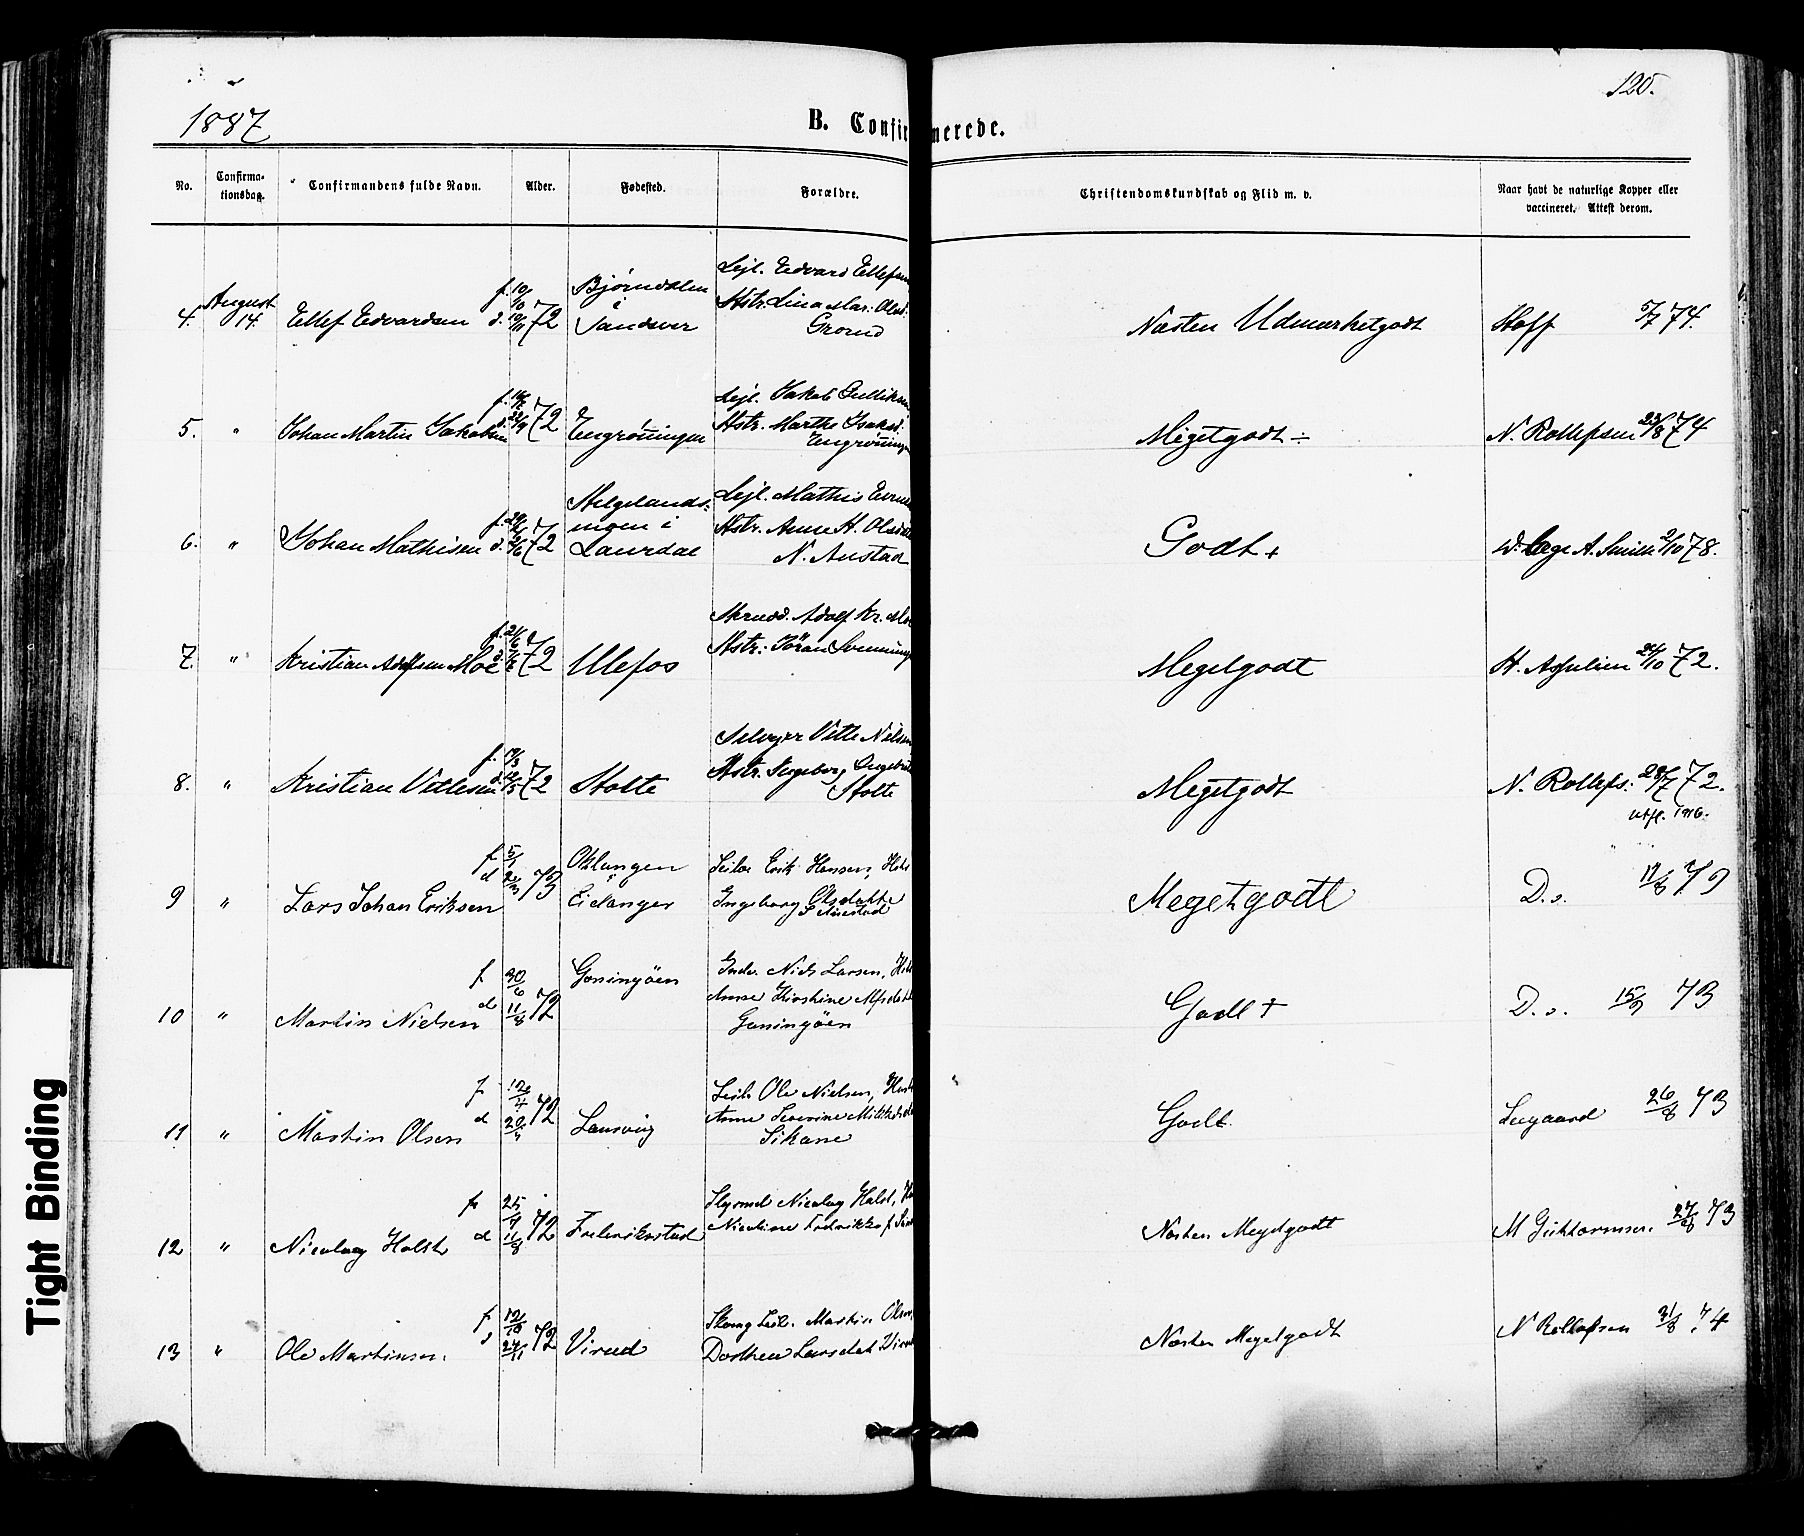 120.
1887
B. Confirmerede.
No.
Confirma-
tionsdag.
Confirmandens fulde Navn.
Alder.
Fødested.
Forældre.
Christendomskundskab og Flid m. v.
Naar havt de naturlige Kopper eller
vaccineret. Attest derom.
4. August 14. Ellef Edvardsen f. 10/10 d. 10/11 72
Bjørndalen
i
Sandsver
Lejl. Edvard Ellefsen
Hstr. Lina Mar. Olsd.
Grorud
Næsten Udmærketgodt
Hoff 5/7 74.
5. " Johan Martin Jakobsen 72
Engrønningen
Lejl. Jakob Gulliksen
Hstr. Marthe Isaksd.
Engrønningen
Megetgodt ÷
N. Rollefsen 23/8 74
6. " Johan Mathisen 72
Helgelands-
moen i
Laurdal
Lejl. Mathis
Hstr. Anne H. Olsd
N. Anstad
Godt +
A. Smith 2/10 78.
7. " Kristian Adolfsen Moe 72
Ulefos
Adolf Kr. Moe
Hstr. Jöran Svenning
Megetgodt
H. Asjulien 24/10 72.
8. " Kristian Vetlesen f. 17/3 72
Holte
Selvejer Vetle Nilsen
Hstr. Ingeborg Engebr
Holte
Megetgodt
N. Rollefs. 28/7 72.
utfl. 1916.
9 " Lars Johan Eriksen f 5/1 d 73
Oklungen
i
Eidanger
Leilæ Erik Hansen, H
Ingeborg Olsdatte
Megetgodt
D. o. 17/8 79
10 " Martin Nielsen f 30/6 d 11/8 72
Goningöen
Niels Larsen, H
Anne Kirstine
Goningöen
Godt +
D. o. 15/9 73
11 " Martin Olsen f 12/4 d 20/5 72
Lansvig
Leil. Ole Nielsen, Hust
Anne Severine
Sikane
Godt.
Leegaard 26/8 73
12 " Nicolay Holst f 25/4 d 11/8 72
Frederikstad
Styrmd Nicolay Holst, H
Nicoline Fredrikke f.
Næsten Megetgodt
M Guttormsen 27/8 73
13 " Ole Martinsen. f 12/10 d 24/11 72
Virud
Leil. Martin Olsen,
Dorthea Larsdat Virud
Næsten Megetgodt
N Rollefsen 31/8 74
Tight Binding